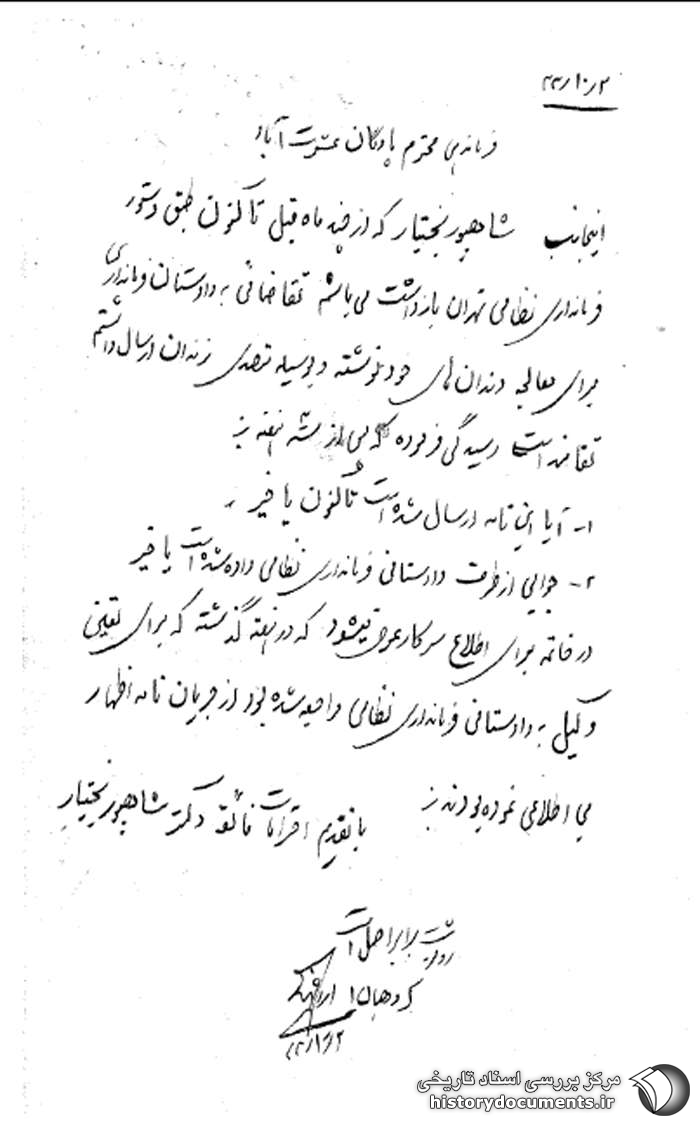 ۴۲/۱۰/۲
فرماندهی محترم پادگان عشرت آباد
اینجانب شاهپور بختیار که از چند ماه قبل تا کنون طبق دستور
فرمانداری نظامی تهران بازداشت می باشم تقاضائی به دادستان فرمانداری
برای معالجه دندان های خود نوشته و بوسیله متصدی زندان ارسال داشتم
تقاضمند است رسیدگی فرموده که پس از سه هفته
۱- آیا این نامه ارسال شده است تا کنون یا خیر
۲- جوابی از طرف دادستانی فرمانداری نظامی داده شده است یا خیر
در خاتمه برای اطلاع سرکار عرض میشود که در هفته گذشته که برای تعیین
وکیل به دادستانی فرمانداری نظامی مراجعه شده بود از جریان نامه اظهار
بی اطلاعی نموده بودند
با تقدیم احترامات فائقه دکتر شاهپور بختیار
رونوشت برابر اصل است
گروهبان ۱
۴۲/۱۰/۲
مرکز بررسی اسناد تاریخی
historydocuments.ir